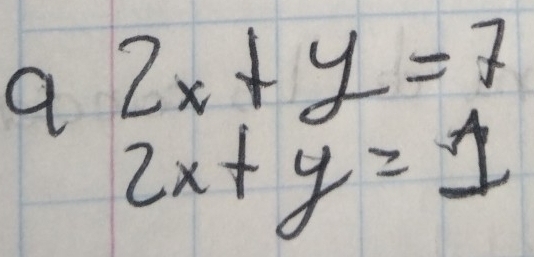 a 2x + y = 7
2x + y = 1